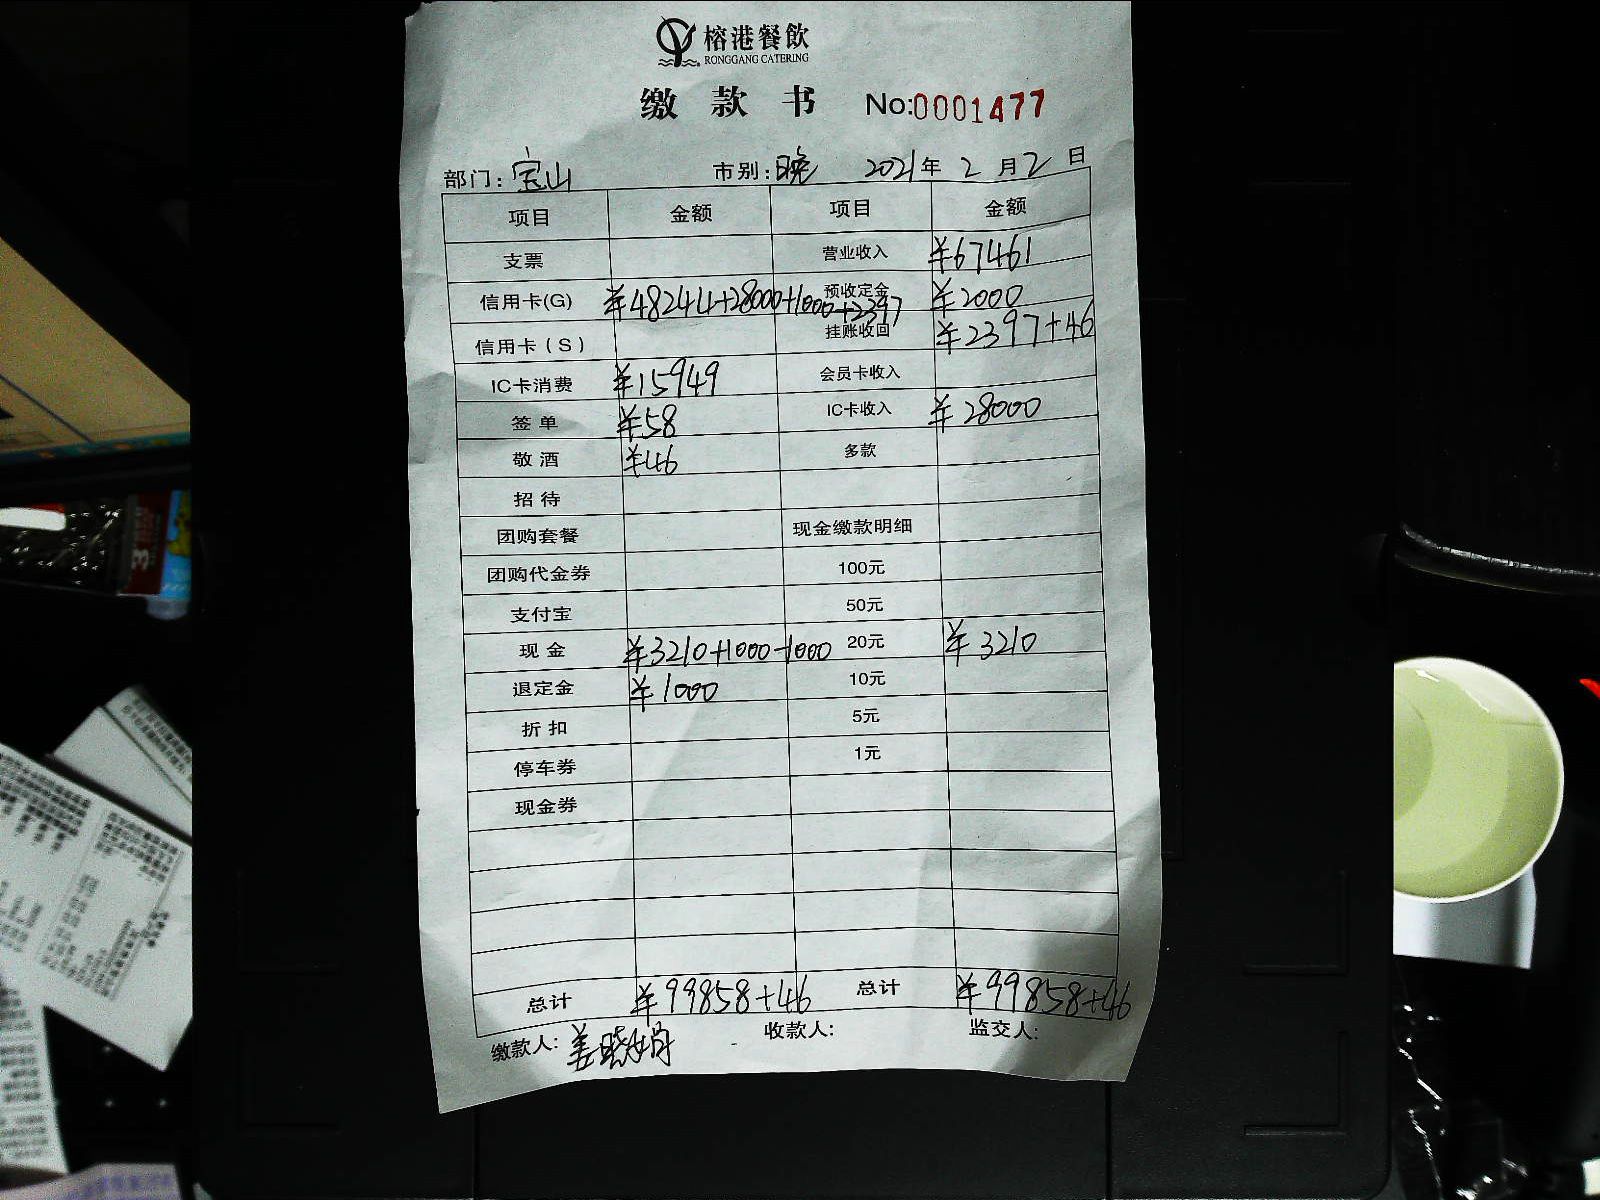 榕港餐飲
RONGGANG CATERING
缴款书 No:0001477
部门:宝山 市别:晚 2021年2月2日
项目 金额 项目 金额
支票 营业收入 ¥67461
信用卡(G) ¥48244+28000+1000+2397 预收定金 ¥2000
信用卡(S) 挂账收回 ¥2397+46
IC卡消费 ¥15949 会员卡收入
签单 ¥58 IC卡收入 ¥28000
敬酒 ¥46 多款
招待
团购套餐 现金缴款明细
团购代金券 100元
支付宝 50元
现金 ¥3210+1000-1000 20元 ¥3210
退定金 ¥1000 10元
折扣 5元
停车券 1元
现金券
总计 ¥99858+46 总计 ¥99858+46
缴款人:姜晓娟 收款人: 监交人: